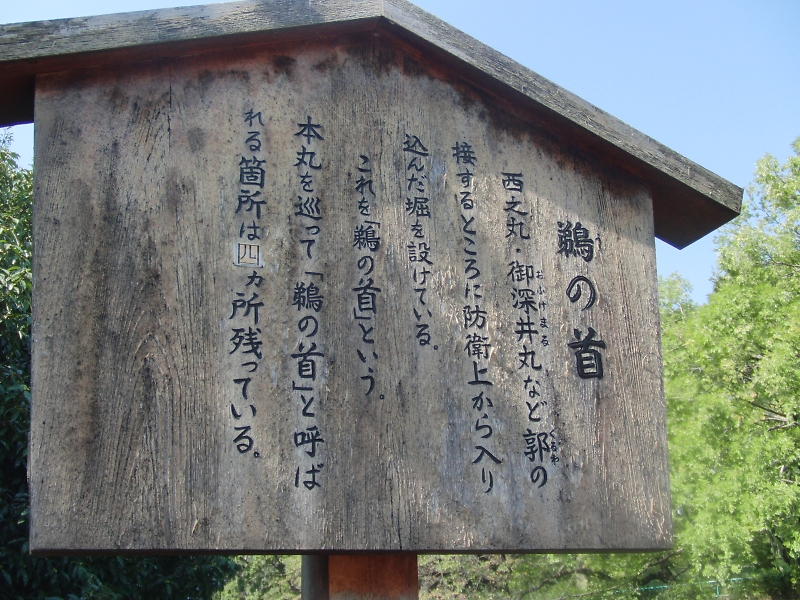 鵜の首
西之丸・御深井丸など郭の
接するところに防衛上から入り
込んだ堀を設けている。
これを「鵜の首」という。
本丸を巡って「鵜の首」と呼ば
れる箇所は四ヵ所残っている。
う
おふけまる
くるわ